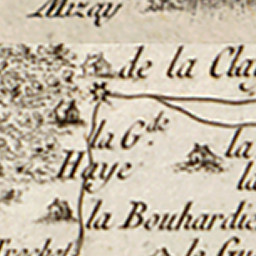 Mizay
de la Clay
la G.de
Haye
la
la
la Bouhardie
Trechet
le Gu